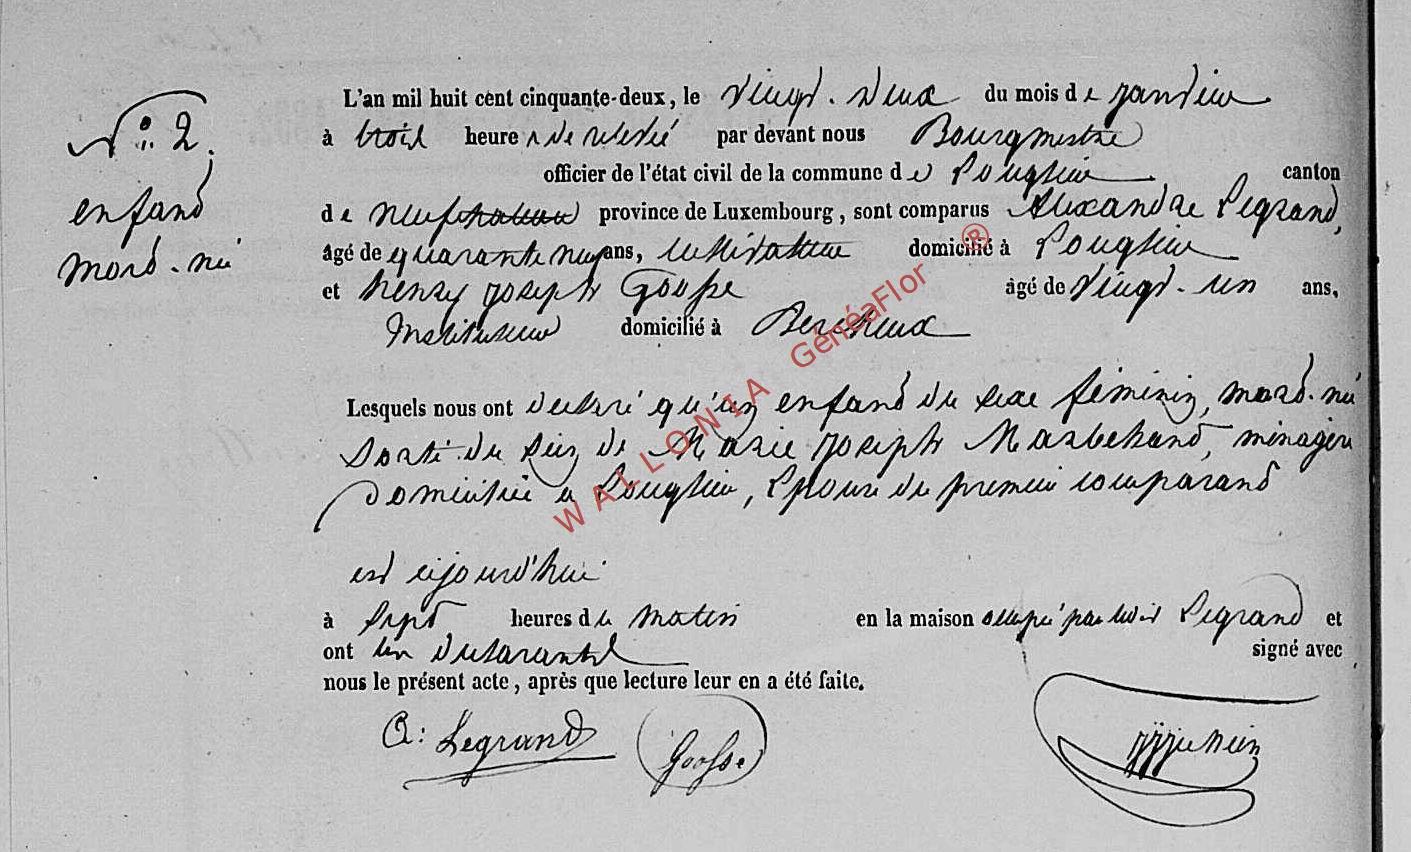 N° 2.
enfand
mord-né
L'an mil huit cent cinquante-deux, le vingt-deux du mois de janvier
à trois heures de relevé par devant nous Bourgmestre
officier de l'état civil de la commune de Louftémont canton
de neufchateau province de Luxembourg, sont comparus Alexandre Legrand,
âgé de quarante neuf ans, cultivateur domicilié à
et henry joseph Goosse âgé de vingt-un ans,
Instituteur domicilié à Bercheux
Lesquels nous ont declaré qu'un enfand du sexe féminin, mord-né
sorti du sein de Marie joseph Marbehand, ménagère
domiciliée a, epouse du premier comparand
est aujourd'hui
à sept heures du matin en la maison occupé par ledit Legrand et
ont les declarants signé avec
nous le présent acte, après que lecture leur en a été faite.
A: Legrand Goosse
WALLONIA GénéaFlor ®